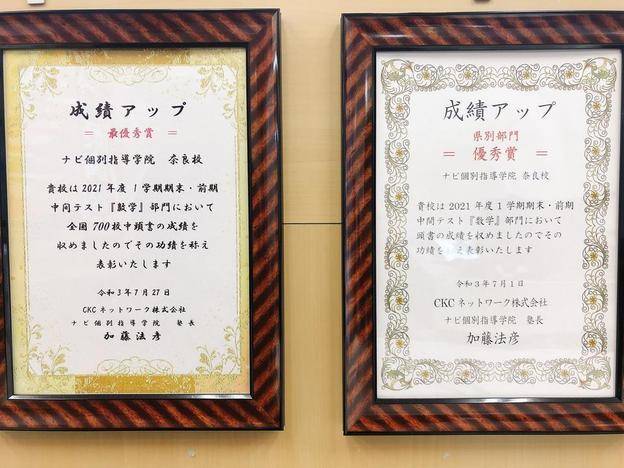 成績アップ
＝ 最優秀賞 ＝
ナビ個別指導学院 奈良校
貴校は2021年度1学期期末・前期
中間テスト『数学』部門において
全国700校中頭書の成績を
収めましたのでその功績を称え
表彰いたします
令和3年7月27日
CKCネットワーク株式会社
ナビ個別指導学院 塾長
加藤法彦
成績アップ
県別部門
＝ 優秀賞 ＝
ナビ個別指導学院 奈良校
貴校は2021年度1学期期末・前期
中間テスト『数学』部門において
頭書の成績を収めましたのでその
功績を称え表彰いたします
令和3年7月1日
CKCネットワーク株式会社
ナビ個別指導学院 塾長
加藤法彦